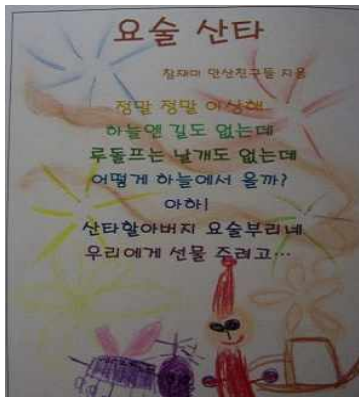 요술 산타
참재미 만상친구들 지음
정말 정말 이상해
하늘엔 길도 없는데
루돌프는 날개도 없는데
어떻게 하늘에서 올까?
아하!
산타할아버지 요술부리네
우리에게 선물 주려고…